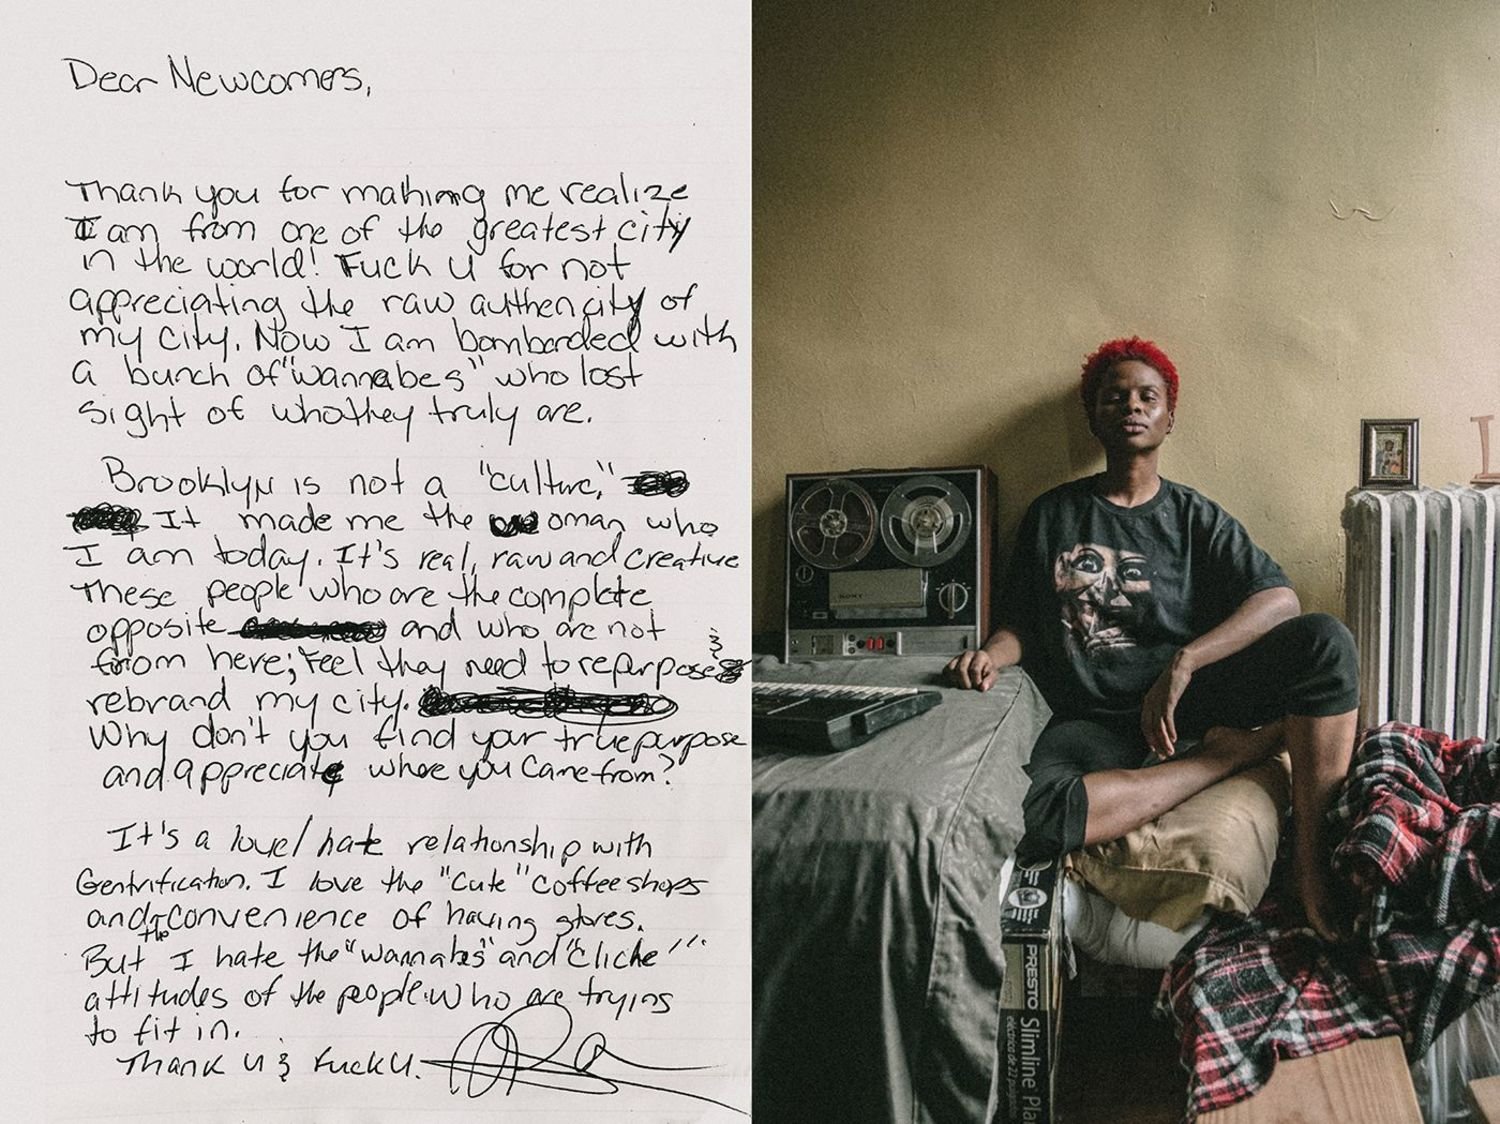 Dear Newcomers,
Thank you for making me realize
I am from one of the greatest city
in the world! Fuck u for not
appreciating the raw authencity of
my city. Now I am bombarded with
a bunch of "wannabes" who lost
sight of who they truly are.
Brooklyn is not a "culture,"
It made me the woman who
I am today. It's real, raw and creative
These people who are the complete
opposite and who are not
from here; feel they need to repurpose &
rebrand my city.
Why don't you find your true purpose
and appreciate where you came from?
It's a love/hate relationship with
Gentrification. I love the "cute" coffee shops
and the convenience of having stores.
But I hate the "wannabes" and "cliche"
attitudes of the people who are trying
to fit in.
Thank u & Fuck u.
SONY
L
PRESTO Slimline Pla